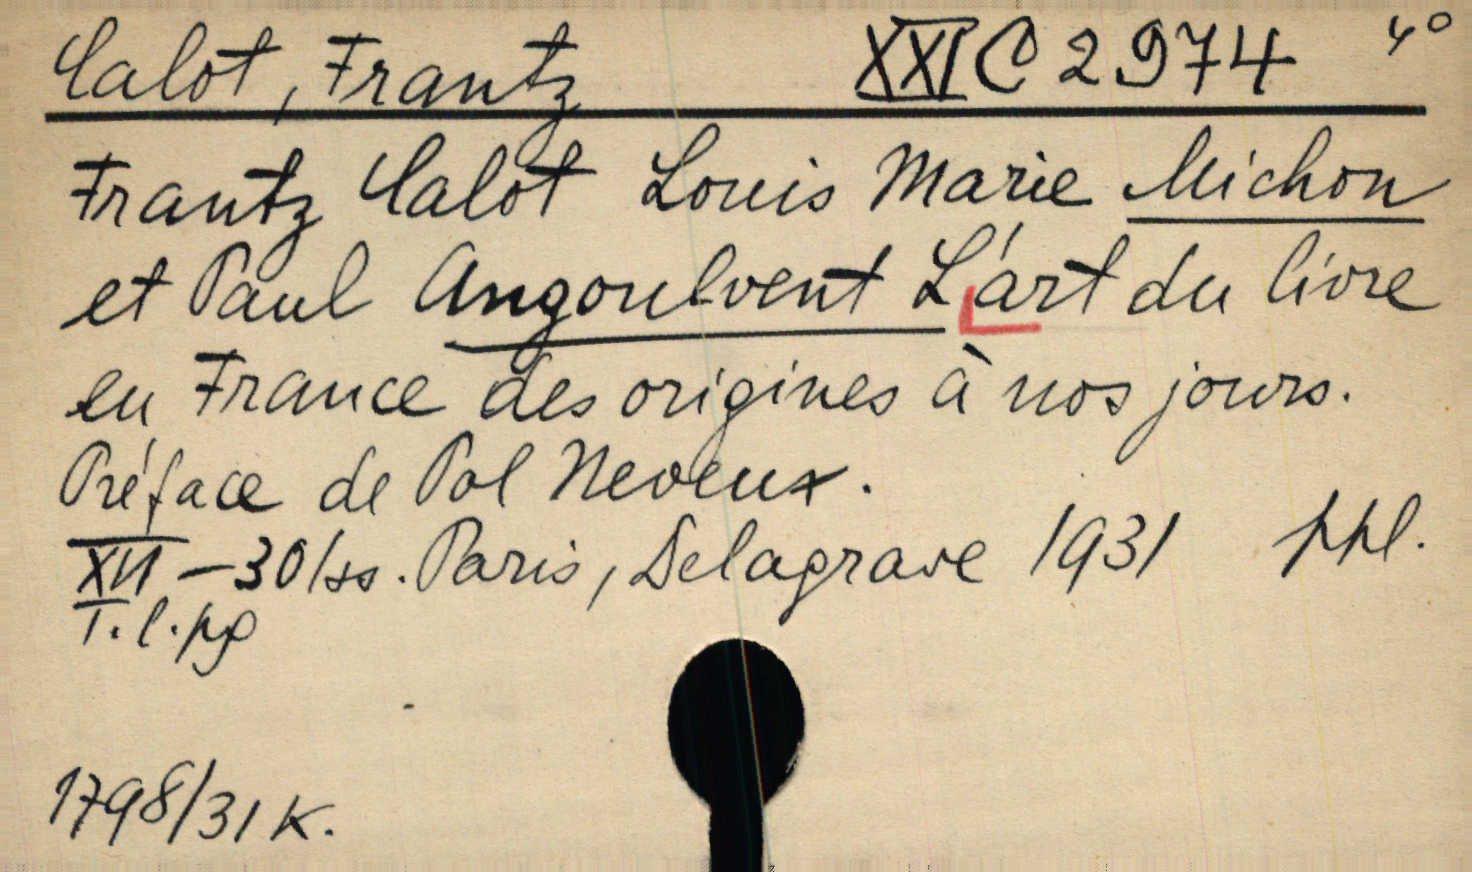 Calot, Frantz XXI C 2974 4°
Frantz Calot Louis Marie Michon
et Paul Angoulvent L'art du livre
en France des origines à nos jours.
Préface de Pol Neveux.
XVI – 301 ss. Paris, Delagrave 1931 ppl.
T. l. pg
1798/31 K.